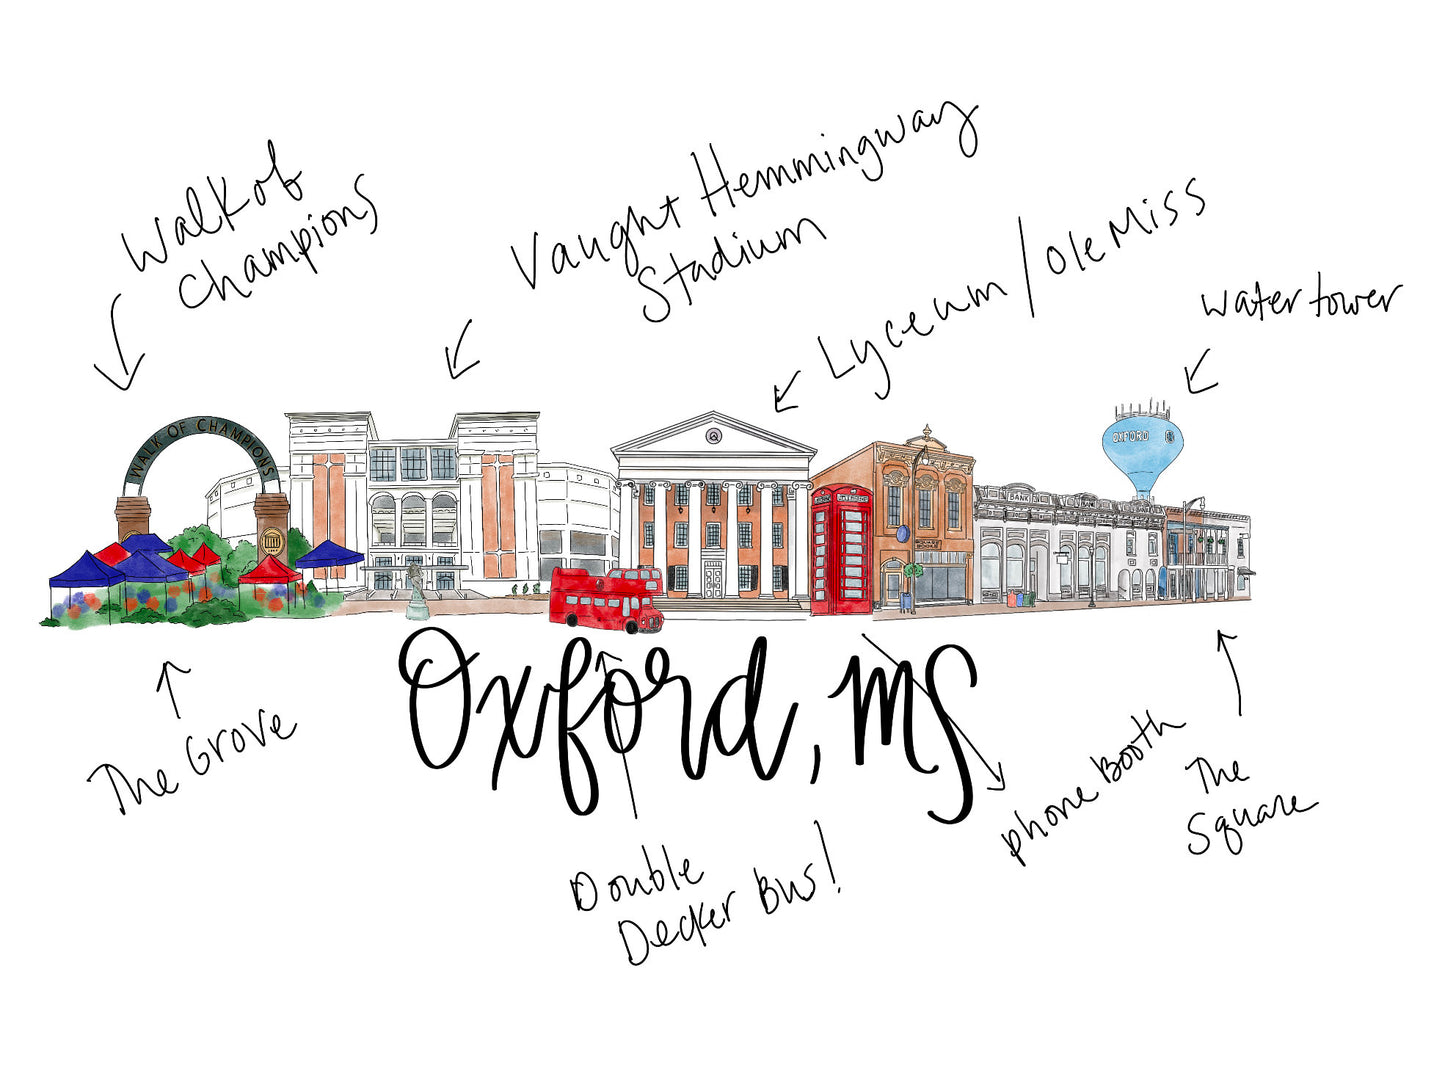 Walk of
Champions
Vaught Hemmingway
Stadium
Lyceum / Ole Miss
water tower
WALK OF CHAMPIONS
OXFORD
BANK
The Grove
Oxford, MS
Double
Decker Bus!
phone Booth
The
Square